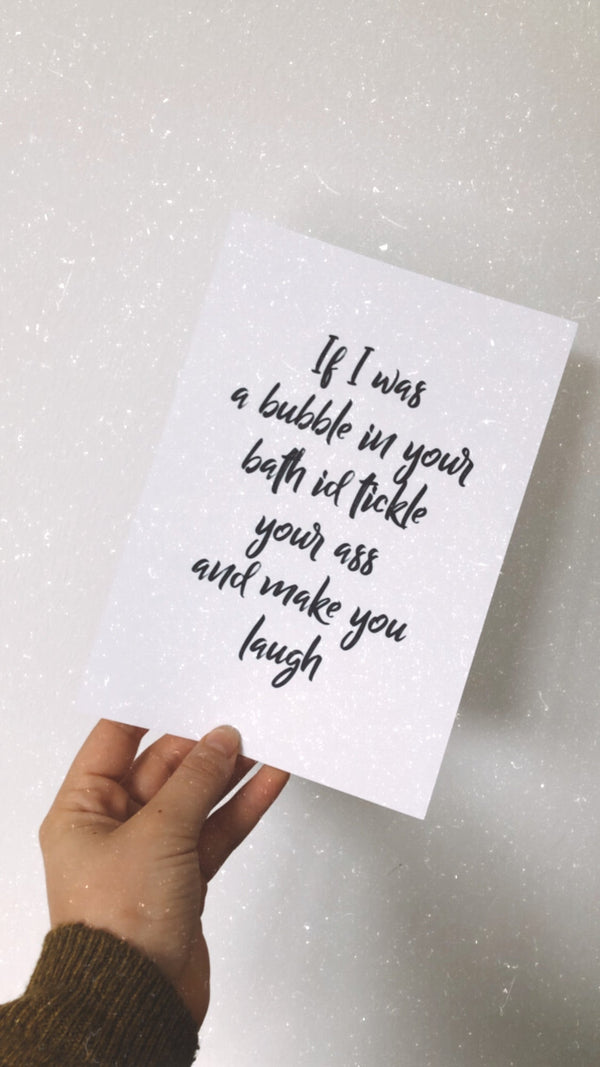 If I was
a bubble in your
bath id tickle
your ass
and make you
laugh